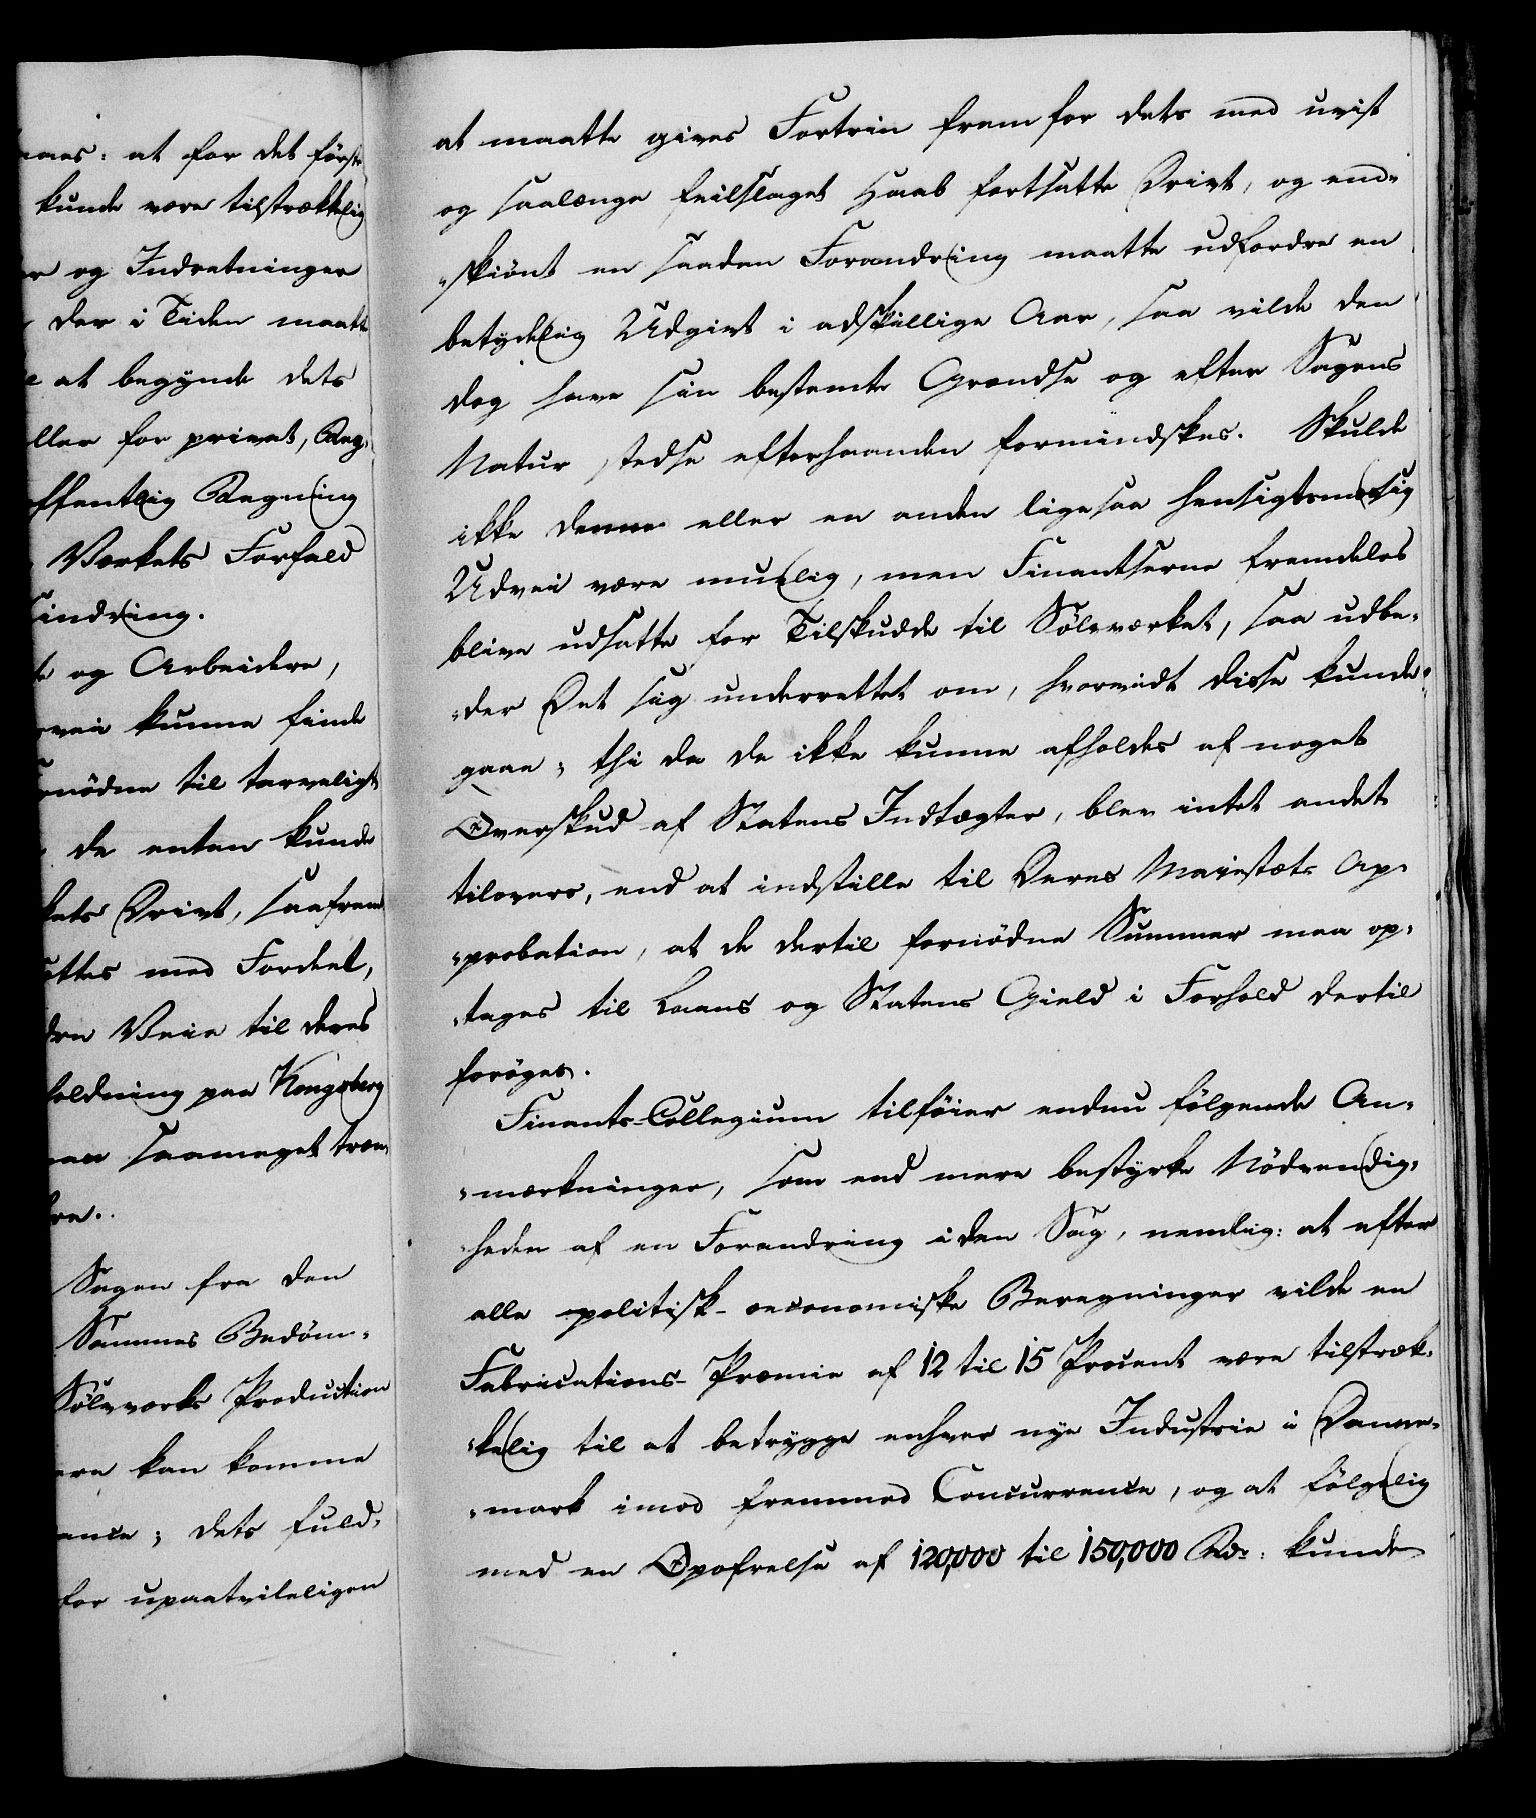 aaes: at for det første
kunde være tilstrækkelig
er og Indretninger
der i Tiden maatte
e at begynde dets
ller for privat, Reg-
ffentlig Regning
Værkets Forfald
indring.
te og Arbeidere,
vei kunne finde
nødne til tarveligt
de enten kunde
kets Drivt, saafremt
ettes med Fordeel,
dre Veie til deres
holdning paa Kongsberg
saameget træn-
re.
Sagen fra den
Sammes Bedøm-
Sølvværks Production
ere kan komme
ance; dets fuld-
for upaatvileligen
at maatte gives Fortrin frem for dets med uvist
og saalænge feilslaget Haab fortsatte Drivt, og end-
-skiønt en saadan Forandring maatte udfordre en
betydelig Udgivt i adskillige Aar, saa vilde den
dog have sin bestemte Grændse og efter Sagens
Natur stedse efterhaanden formindskes. Skulde
ikke denne eller en anden ligesaa hensigtsmæssig
Udvei være muelig, men Finantserne fremdeles
blive udsatte for Tilskudde til Sølvværket, saa udbe-
-der Det sig underrettet om, hvorvidt disse kunde
gaae; thi da de ikke kunne afholdes af noget
Overskud af Statens Indtægter, blev intet andet
tilovers, end at indstille til Deres Majestæts Ap-
-probation, at de dertil fornødne Summer maa op-
-tages til Laans og Statens Gield i Forhold dertil
forøges.
Finants-Collegium tilføier endnu følgende An-
-mærkninger, som end mere bestyrke Nødvendig-
-heden af en Forandring i den Sag, nemlig: at efter
alle politisk-oeconomiske Beregninger vilde en
Fabrications-Præmie af 12 til 15 Procent være tilstræk-
-kelig til at betrygge enhver nye Industrie i Danne-
-mark imod fremmed Concurrence, og at følgelig
med en Opofrelse af 120,000 til 150,000 Rdr. kunde